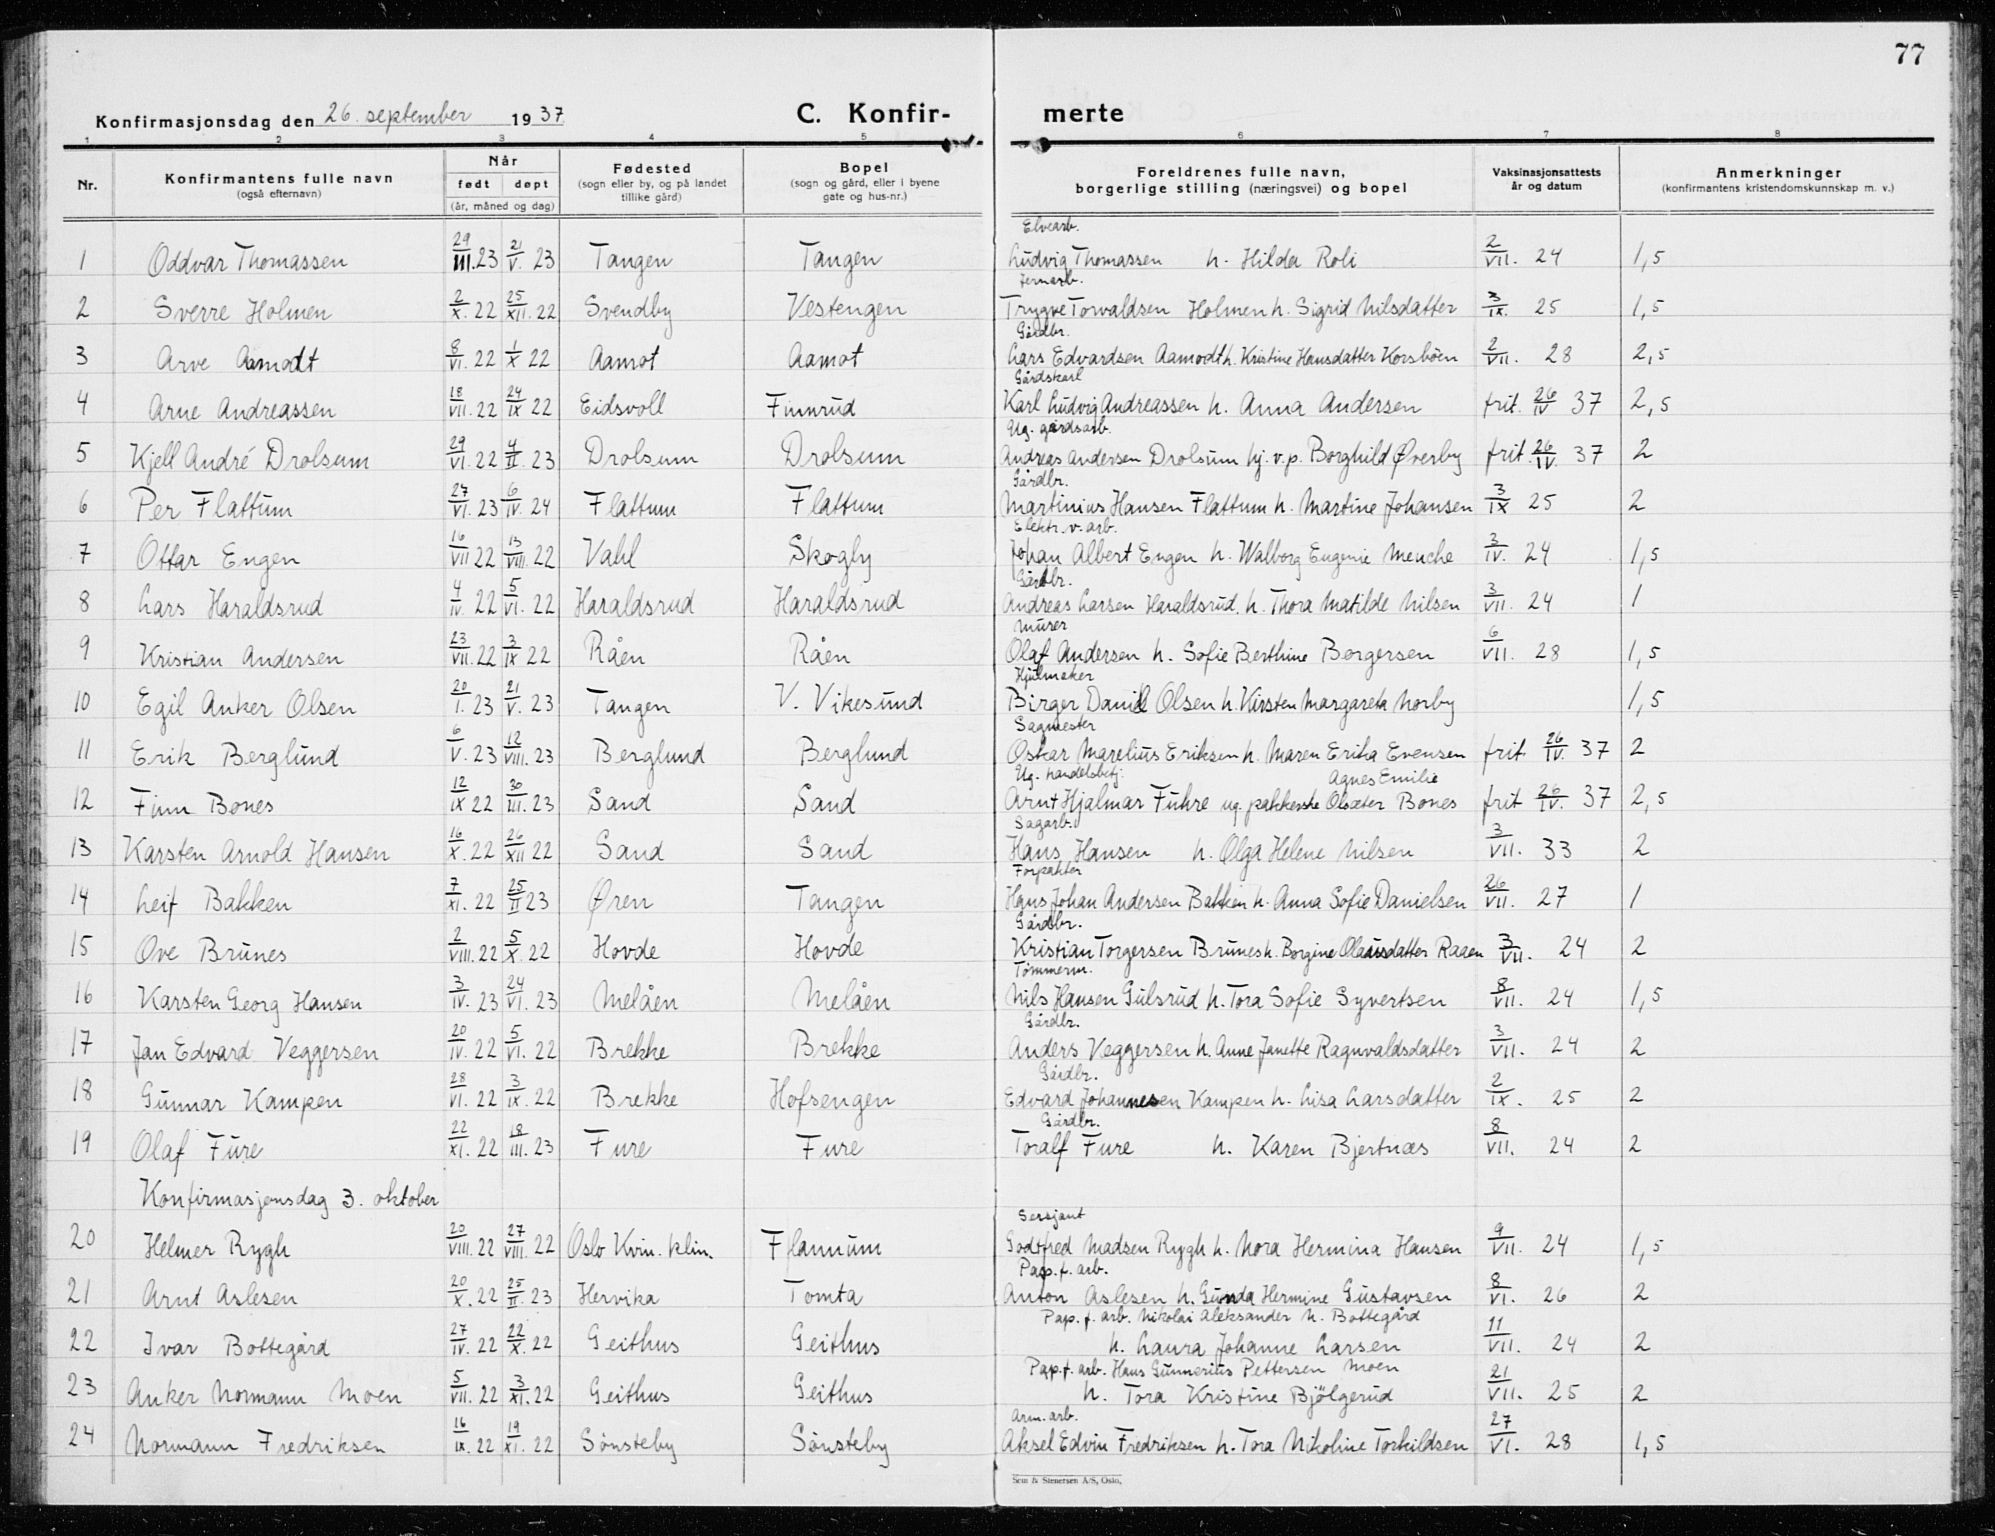 77
Konfirmasjonsdag den 26. september 1937 C. Konfir- merte
1 2 3 4 5 6 7 8
Nr. Konfirmantens fulle navn (også efternavn) Når født døpt (år, måned og dag) Fødested (sogn eller by, og på landet tillike gård) Bopel (sogn og gård, eller i byene gate og hus-nr.) Foreldrenes fulle navn, borgerlige stilling (næringsvei) og bopel Vaksinasjonsattests år og datum Anmerkninger (konfirmantens kristendomskunnskap m. v.)
Elvearb.
1 Oddvar Thomassen 29/III.23 21/V.23 Tangen Tangen Ludvig Thomassen h. Hilda Roli 2/VII. 24 1,5
Jernarb.
2 Sverre Holmen 2/X.22 25/XII.22 Svendby Vestengen Trygve Torvaldsen Holmen h. Sigrid Nilsdatter 3/IX. 25 1,5
Gårdbr.
3 Arve Aamodt 8/VI.22 1/X 22 Aamot Aamot Lars Edvardsen Aamodt h. Kristine Hansdatter Korsbøen 2/VII. 28 2,5
Gårdskarl
4 Arne Andreassen 18/VII.22 24/IX 22 Eidsvoll Finnrud Karl Ludvig Andreassen h. Anna Andersen frit. 26/IV 37 2,5
Ug. gårdsarb.
5 Kjell André Drolsum 29/VI.22 4/II.23 Drolsum Drolsum Andreas Andersen Drolsum hj. v. p. Borghild Øverby frit 26/IV. 37 2
Gårdbr.
6 Per Flattum 27/VI.23 6/IV.24 Flattum Flattum Martinius Hansen Flattum h. Martine Johansen 3/IX 25 2
Elektr. v. arb.
7 Ottar Engen 16/VII 22 13/VIII.22 Vahl Skogby Johan Albert Engen h. Walborg Eugenie Menche 3/IV. 24 1,5
Gårdbr.
8 Lars Haraldsrud 4/IV.22 5/VI.22 Haraldsrud Haraldsrud Andreas Larsen Haraldsrud. h. Thora Matilde Nilsen 3/VII. 24 1
Murer
9 Kristian Andersen 23/VII.22 3/IX 22 Råen Råen Olaf Andersen h. Sofie Berthine Borgersen 6/VII. 28 1,5
Hjulmaker
10 Egil Anker Olsen 20/I.23 21/V.23 Tangen V. Vikesund Birger Daniel Olsen h. Kirsten Margareta Norby 1,5
Sagmester
11 Erik Berglund 6/V.23 12/VIII.23 Berglund Berglund Oskar Marelius Eriksen h. Maren Erika Evensen frit 26/IV. 37 2
Ug. handelsbetj. Agnes Emilie
12 Finn Bones 12/IX 22 30/III.23 Sand Sand Arnt Hjalmar Fuhre ug. Olsæter Bones frit 26/IV. 37 2,5
Sagarb.
13 Karsten Arnold Hansen 16/X.22 26/XII 22 Sand Sand Hans Hansen h. Olga Helene Nilsen 3/VII. 33 2
Forpakter
14 Leif Bakken 7/XI.22 25/II 23 Øren Tangen Hans Johan Andersen Bakken h. Anna Sofie Danielsen 26/VII. 27 1
Gårdbr.
15 Ove Brunes 2/VIII.22 5/X.22 Hovde Hovde Kristian Torgersen Brunes h. Borgine Olausdatter Raaen 3/VII. 24 2
Tømmerm.
16 Karsten Georg Hansen 3/IV.23 24/VI.23 Melåen Melåen Nils Hansen Gulsrud h. Tora Sofie Syvertsen 8/VII. 24 1,5
Gårdbr.
17 Jan Edvard Veggersen 20/IV.22 5/VI.22 Brekke Brekke Anders Veggersen h. Anne Janette Ragnvaldsdatter 3/VII. 24 2
Gårdbr.
18 Gunnar Kampen 28/VI.22 3/IX.22 Brekke Hofsengen Edvard Johannesen Kampen h. Lisa Larsdatter 2/IX. 25 2
Gårdbr.
19 Olaf Fure 22/XI.22 18/III.23 Fure Fure Toralf Fure h. Karen Bjertnæs 8/VII. 24 2
Konfirmasjonsdag 3. oktober
Sersjant
20 Helmer Rygh 20/VIII.22 27/VIII.22 Oslo Kvin. klin. Flannum Godtfred Madsen Rygh h. Nora Hermina Hansen 9/VII. 24 1,5
Pap. f. arb.
21 Arnt Aslesen 20/X.22 25/II.23 Hervika Tomta Anton Aslesen h. Gunda Hermine Gustavsen 8/VI. 26 2
Pap. f. arb. Nikolai Aleksander N. Bottegård
22 Ivar Bottegård 27/IV.22 22/X.22 Geithus Geithus h. Laura Johanne Larsen 11/VII. 24 2
Pap. f. arb. Hans Gunnerius Pettersen Moen
23 Anker Normann Moen 5/VII.22 3/XI.22 Geithus Geithus h. Tora Kristine Bjölgerud 21/VII. 25 2
Arm. arb.
24 Normann Fredriksen 16/IX.22 19/XI.22 Sönsteby Sönsteby Aksel Edvin Fredriksen h. Tora Nikoline Torkildsen 27/VI. 28 1,5
Sem & Stenersen A/S, Oslo.